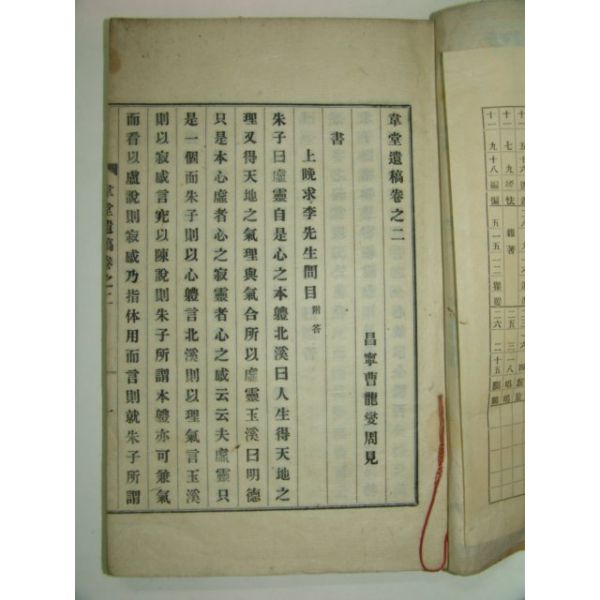 十一 七 九 怯 雜著 二五 三 一八 唱
十一 九 十八 編 偏 五 一五 一二 二六 二十五
韋堂遺稿卷之二
昌寧曹龍燮周見
書
上晩求李先生問目附答
朱子曰虛靈自是心之本軆北溪曰人生得天地之
理又得天地之氣理與氣合所以虛靈玉溪曰明德
只是本心虛者心之寂靈者心之感云云夫虛靈只
是一個而朱子則以心軆言北溪則以理氣言玉溪
則以寂感言究以陳說則朱子所謂本軆亦可兼氣
而看以盧說則寂感乃指体用而言則就朱子所謂
韋堂遺稿卷之二 一